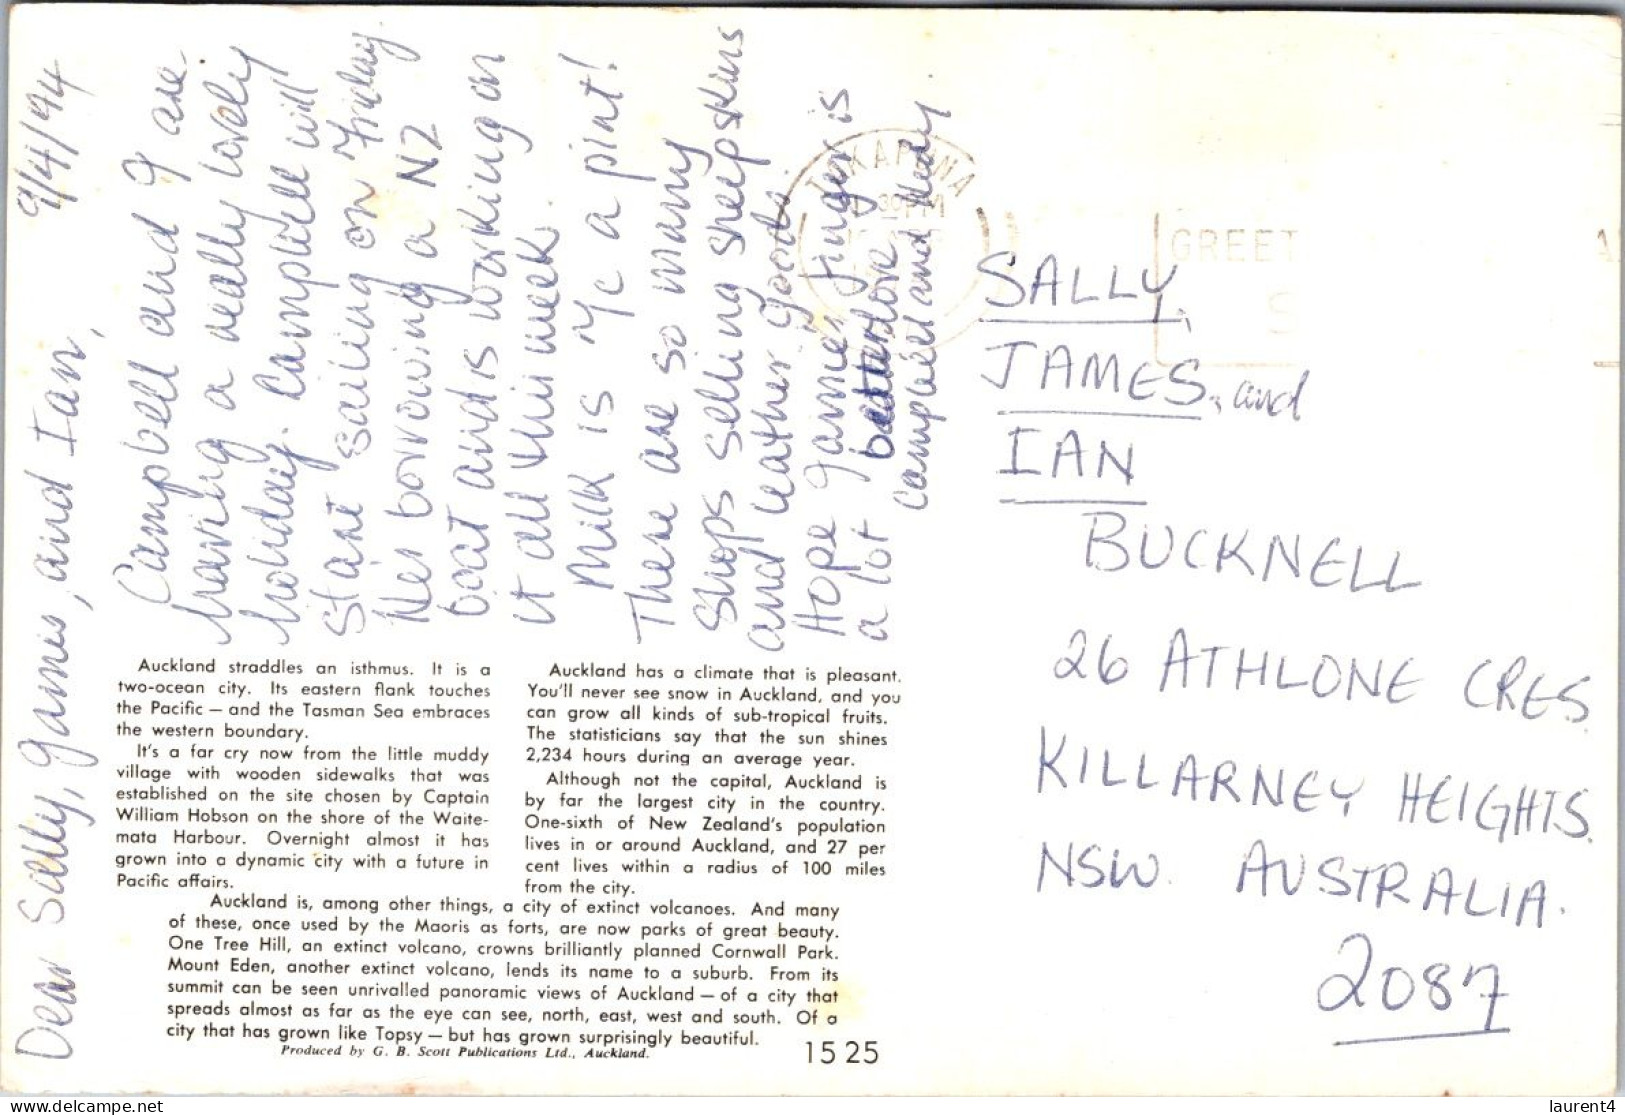 9/4/94
Dear Sally, James, and Ian,
Campbell and I are
having a really lovely
holiday. Campbell will
start sailing on Friday
He's borrowing a NZ
boat and is working on
it all this week.
Milk is 4c a pint!
There are so many
shops selling sheepskins
and leather goods.
Hope James' finger is
a lot better love
Campbell and
TAKAPUNA
30 PM
GREET
SALLY,
JAMES, and
IAN
BUCKNELL
26 ATHLONE CRES
KILLARNEY HEIGHTS
NSW. AUSTRALIA.
2087
Auckland straddles an isthmus. It is a
two-ocean city. Its eastern flank touches
the Pacific — and the Tasman Sea embraces
the western boundary.
It's a far cry now from the little muddy
village with wooden sidewalks that was
established on the site chosen by Captain
William Hobson on the shore of the Waite-
mata Harbour. Overnight almost it has
grown into a dynamic city with a future in
Pacific affairs.
Auckland has a climate that is pleasant.
You'll never see snow in Auckland, and you
can grow all kinds of sub-tropical fruits.
The statisticians say that the sun shines
2,234 hours during an average year.
Although not the capital, Auckland is
by far the largest city in the country.
One-sixth of New Zealand's population
lives in or around Auckland, and 27 per
cent lives within a radius of 100 miles
from the city.
Auckland is, among other things, a city of extinct volcanoes. And many
of these, once used by the Maoris as forts, are now parks of great beauty.
One Tree Hill, an extinct volcano, crowns brilliantly planned Cornwall Park.
Mount Eden, another extinct volcano, lends its name to a suburb. From its
summit can be seen unrivalled panoramic views of Auckland — of a city that
spreads almost as far as the eye can see, north, east, west and south. Of a
city that has grown like Topsy — but has grown surprisingly beautiful.
Produced by G. B. Scott Publications Ltd., Auckland.
1525
delcampe.net
laurent4